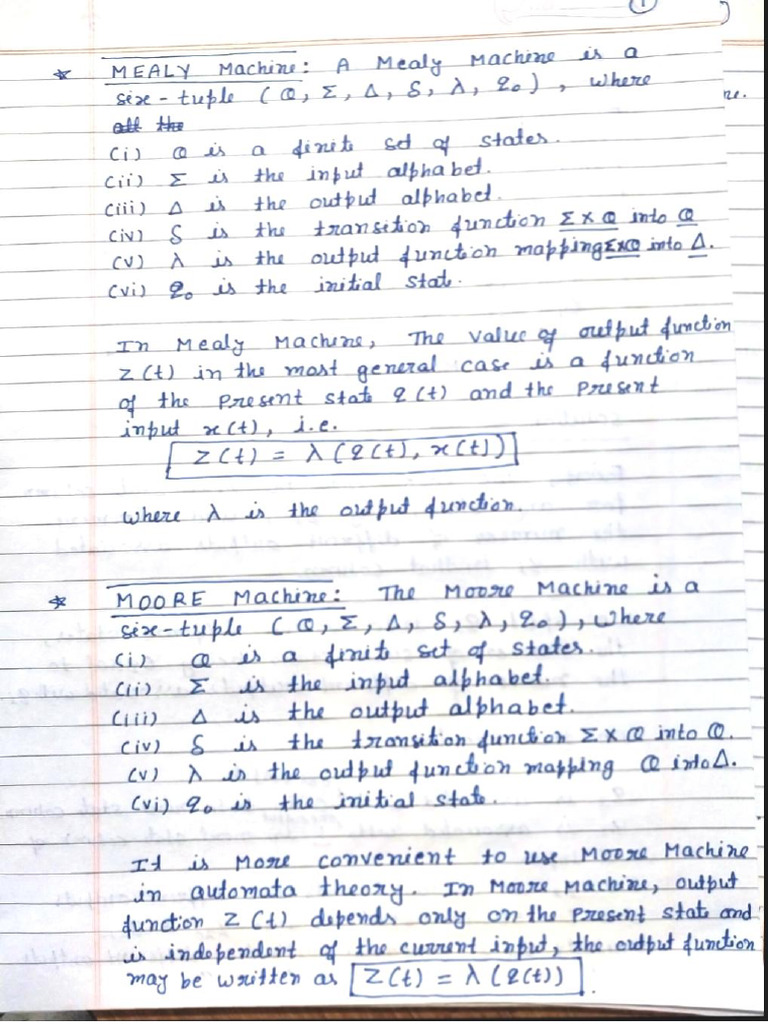 1
ne.
* MEALY Machine: A Mealy Machine is a
six-tuple (Q, Σ, Δ, δ, λ, q₀), where
all the
(i) Q is a finite set of states.
(ii) Σ is the input alphabet.
(iii) Δ is the output alphabet.
(iv) δ is the transition function Σ×Q into Q
(v) λ is the output function mapping Σ×Q into Δ.
(vi) q₀ is the initial state.
In Mealy Machine, The value of output function
Z(t) in the most general case is a function
of the present state q(t) and the present
input x(t), i.e.
Z(t) = λ(q(t), x(t))
where λ is the output function.
* MOORE Machine: The Moore Machine is a
six-tuple (Q, Σ, Δ, δ, λ, q₀), where
(i) Q is a finite set of states.
(ii) Σ is the input alphabet.
(iii) Δ is the output alphabet.
(iv) δ is the transition function Σ×Q into Q.
(v) λ is the output function mapping Q into Δ.
(vi) q₀ is the initial state.
It is more convenient to use Moore Machine
in automata theory. In Moore Machine, output
function Z(t) depends only on the present state and
is independent of the current input, the output function
may be written as Z(t) = λ(q(t)).